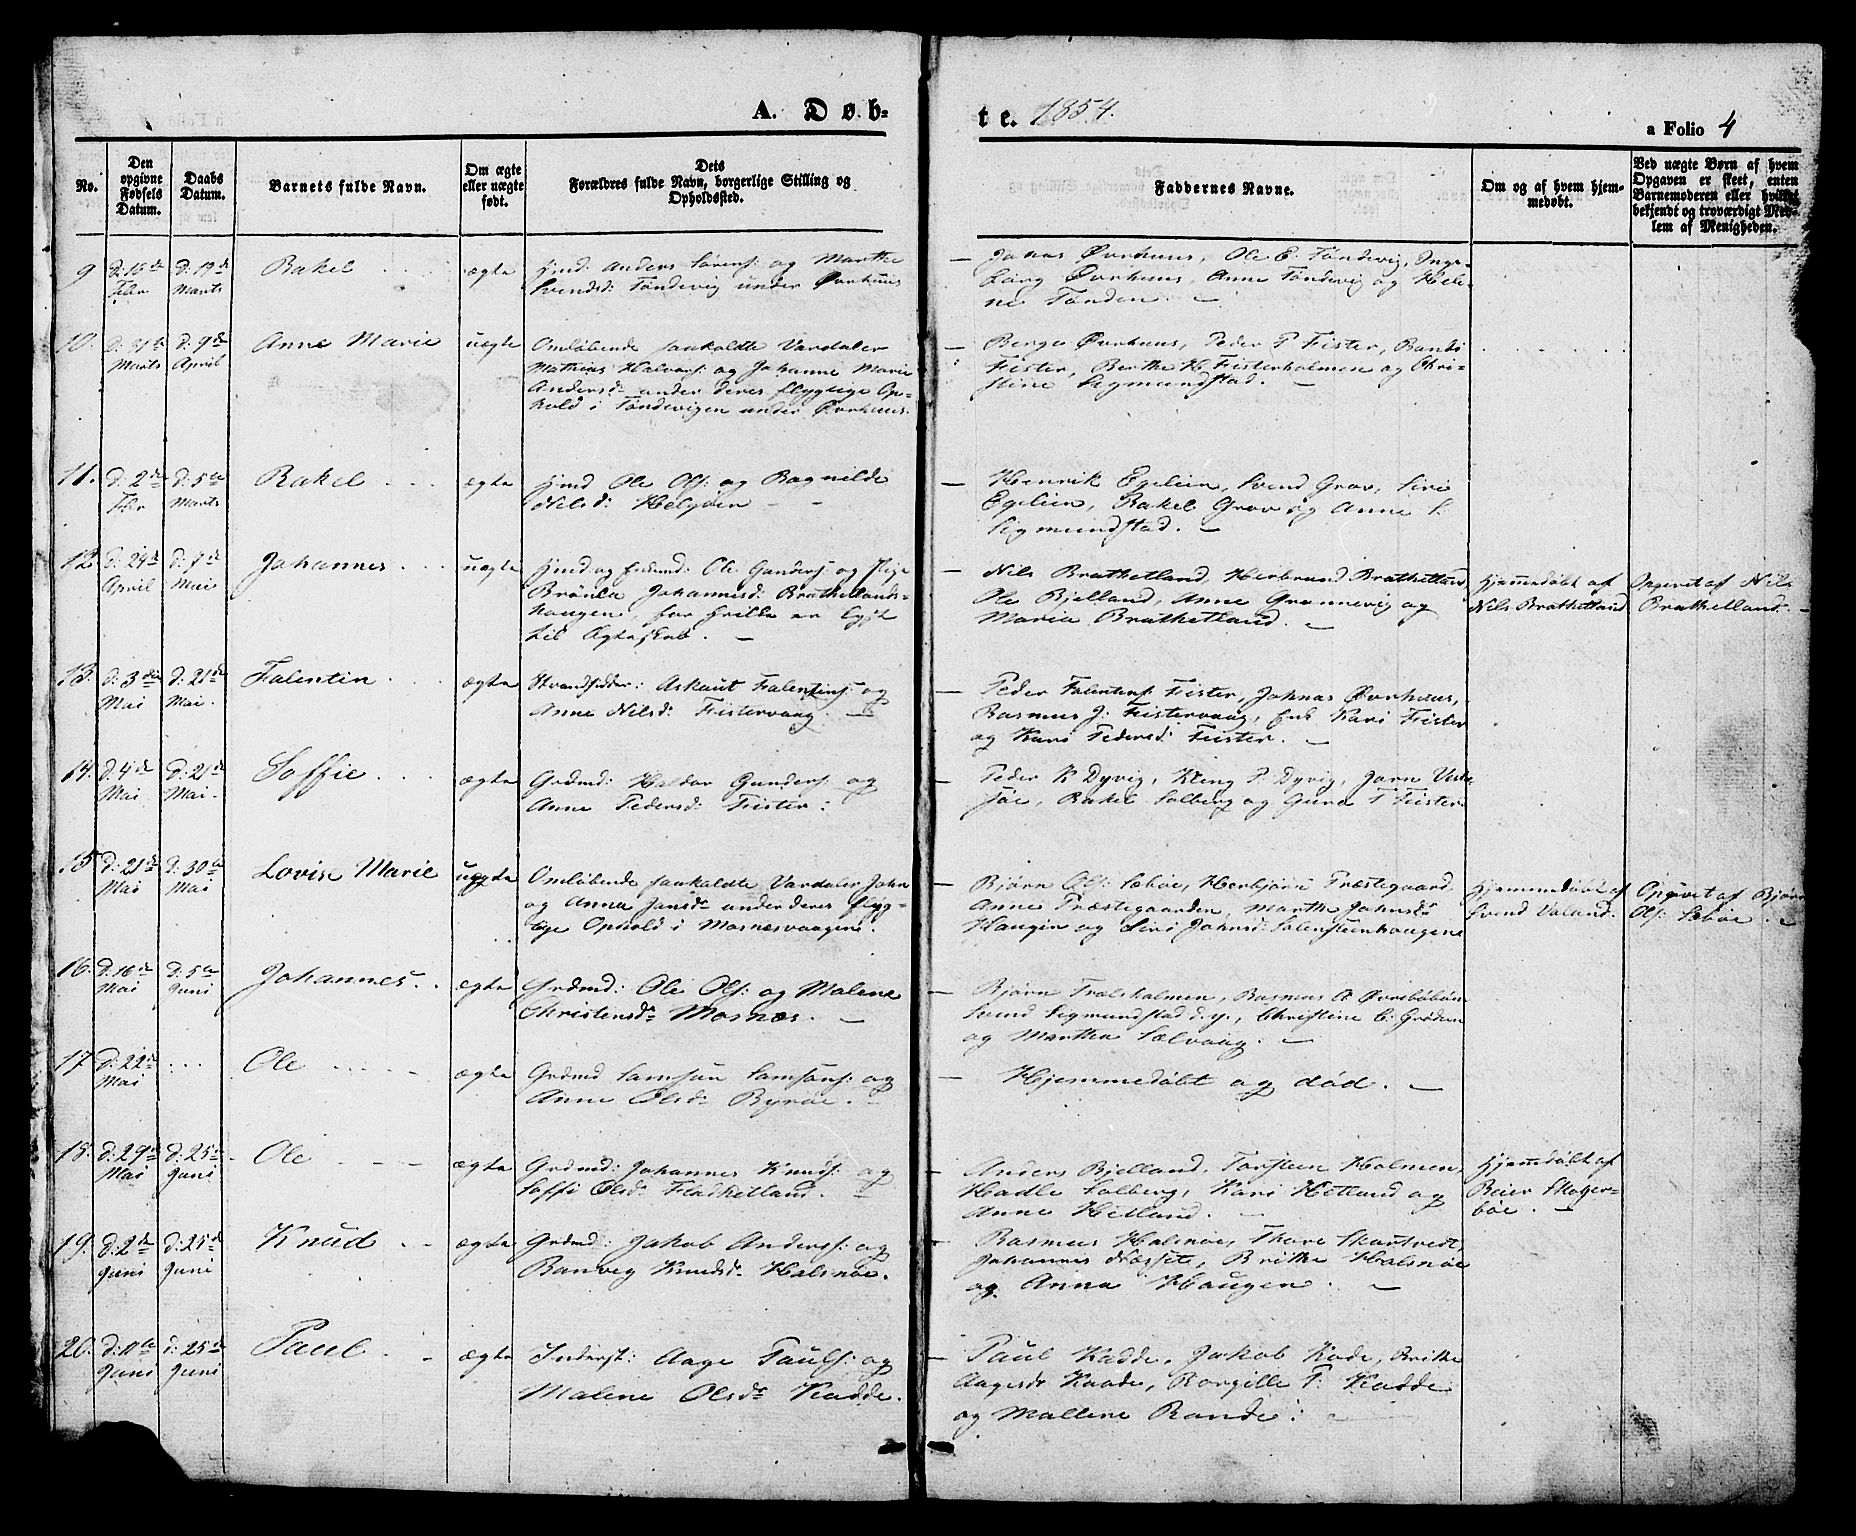 A. Døb-
te. 1854.
a Folio 4
No.
Den
opgivne
Fødsels
Datum.
Daabs
Datum.
Barnets fulde Navn.
Om ægte
eller uægte
født.
Dets
Forældres fulde Navn, borgerlige Stilling og
Opholdssted.
Faddernes Navne.
Om og af hvem hjem-
medøbt.
Ved uægte Børn af hvem
Opgaven er skeet, enten
Barnemoderen eller hvilket
bekjendt og troværdigt Med-
lem af Menigheden.
9 d: 16de Febr d: 19de Marts Rakel ægte
Huusmd: Anders Sørens: og Marthe
Svendsd: Tøndevig under Øvrhuus
Johas Øvrhuus, Ole E. Tøndevig, Inge-
borg Øvrhuus, Anne Tøndevig og Hele-
ne Tønden.
10. Marts d: 9de April Anne Marie uægte
Omløbende saakaldte Vardaler
Mathias Halvors: og Johanne Marie
Andersd: under deres flygtige Op-
hold i Tøndevigen under Øvrhuus.
Berge Øvrhuus, Peder P Fister,
Fister, Berthe H. Fisterholmen og Chri-
stine Sigmundstad.
11. d: 2de Febr d: 5te Marts Rakel ægte
Ole Ols: og Ragnilde
Nilsd: Helgøen
Henrik Egeleien, Svend Grov, Siri
Egeleien, Rakel Grov og Anne S:
Sigmundstad.
12 d: 24de April d: 7de Mai Johannes uægte
Ole Gunders: og Pige
Johannesd: Brathetlands-
haugene, for hvilke er lyst
til Ægteskab.
Nils Brathetland, Herbrand Brathetland
Ole Bjelland, Anne Grønnevig og
Maria Brathetland.
Hjemedøbt af
Nils Brathetland
Opgivet af Nils
Brathetland.
13. d: 3die Mai d: 21de Mai. Falentin ægte
Strandsidder: Askaut Falentins: og
Anne Nilsd: Fistervaag.
Peder Falentens: Fister, Johnas Øvrhuus,
Rasmus J: Fistervaag, Enk Kari Fister
og Kari Pedersd: Fister.
14. d. 4de Mai d: 21de Mai. Soffie ægte
Grdmd: Haldor Gunders: og
Anne Pedersd: Fister:
Peder K Dyvig, Kleng P. Dyvig, Jørn
Rakel Solberg og Guro T Fister
15 d: 21de Mai d: 30te Mai Lovise Marie uægte
Omløbende saakaldte Vardaler John
og Anna Jansd: under deres flyg-
tige Ophold i Mosnæsvaagene.
Bjørn Ols: Sæbøe, Herbjørn Præstegaard
Anne Præstegaarden, Marthe Johnsd:
Haugen og Siri Johnsd:
Hjemmedøbt af
Svend Valand.
Opgivet af Bjørn
Ols: Sæbøe.
16. d: 16de Mai d: 5te Juni Johannes ægte
Grdmd: Ole Ols: og Malene
Christensd: Mosnæs.
Bjørn Trælsholmen, Rasmus
Svend Sigmundstad d. y., Christine C: Grøden
og Marthea Sælvaag.
17 d: 22de Mai Ole ægte
Grdmd Samson Samsons: og
Anne Olsd: Byrøe.
Hjemmedøbt og død.
18. d: 29de Mai d: 25te Juni Ole ægte
Grdmd: Johannes Knuds: og
Soffi Olsd: Fladhetland.
Anders Bjelland, Torsteen Holmen,
Hadle Solberg, Kari Hetland og
Anne Hetland.
Hjemdøbt af
Reier Skoger-
bøe.
19. d: 2de Juni d: 25de Juni Knud ægte
Grdmd: Jakob Anderss: og
Ranveg Knudsd: Halsnøe.
Rasmus Halsnøe, Thore Skartvedt,
Johannes Næsset, Brithe Halsnøe
og Anna Haugen.
20. d: 11te Juni d: 25de Juni Paul ægte
Inderst: Aage Pauls: og
Malene Olsd: Kadde.
Paul Kadde, Jakob Kade, Brithe
Aagesd: Kaade, Borgille P: Kadde
og Mallene Rande.